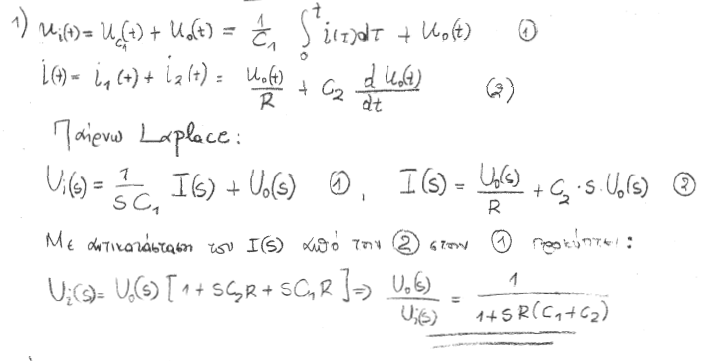 1) u_i(t) = u_{C_1}(t) + u_o(t) = \frac{1}{C_1} \int_0^t i(τ)dτ + u_o(t) ①
i(t) = i_1(t) + i_2(t) = \frac{u_o(t)}{R} + C_2 \frac{d u_o(t)}{dt} (2)
Παίρνω Laplace:
U_i(s) = \frac{1}{sC_1} I(s) + U_o(s) ①, I(s) = \frac{U_o(s)}{R} + C_2 · s · U_o(s) ②
Με αντικατάσταση του I(s) από την ② στην ① προκύπτει:
U_i(s) = U_o(s) [1 + sC_2R + sC_1R] => \frac{U_o(s)}{U_i(s)} = \frac{1}{1 + sR(C_1 + C_2)}